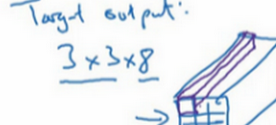 Target output:
3×3×8